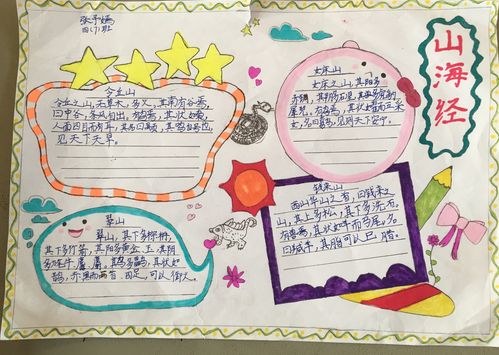 张予嫣
四(7)班
山海经
令丘山
令丘之山,无草木,多火,其南有谷焉,
曰中谷,条风自出,有鸟焉,其状如枭,
人面四目而有耳,其名曰颙,其鸣自号也,
见天下大旱。
女床山
女床之山,其阳多
赤铜,其阴多石涅,其兽多虎豹
犀兕。有鸟焉,其状如翟而五采
文,名曰鸾鸟,见则天下安宁。
翠山
翠山,其上多棕枬,
其下多竹箭,其阳多黄金、玉,其阴
多旄牛、麢、麝。其鸟多鸓,其状如
鹊,赤黑而两首、四足,可以御火。
钱来山
西山华山之首,曰钱来之
山,其上多松,其下多洗石,
有兽焉,其状如羊而马尾,名
曰羬羊,其脂可以已腊。